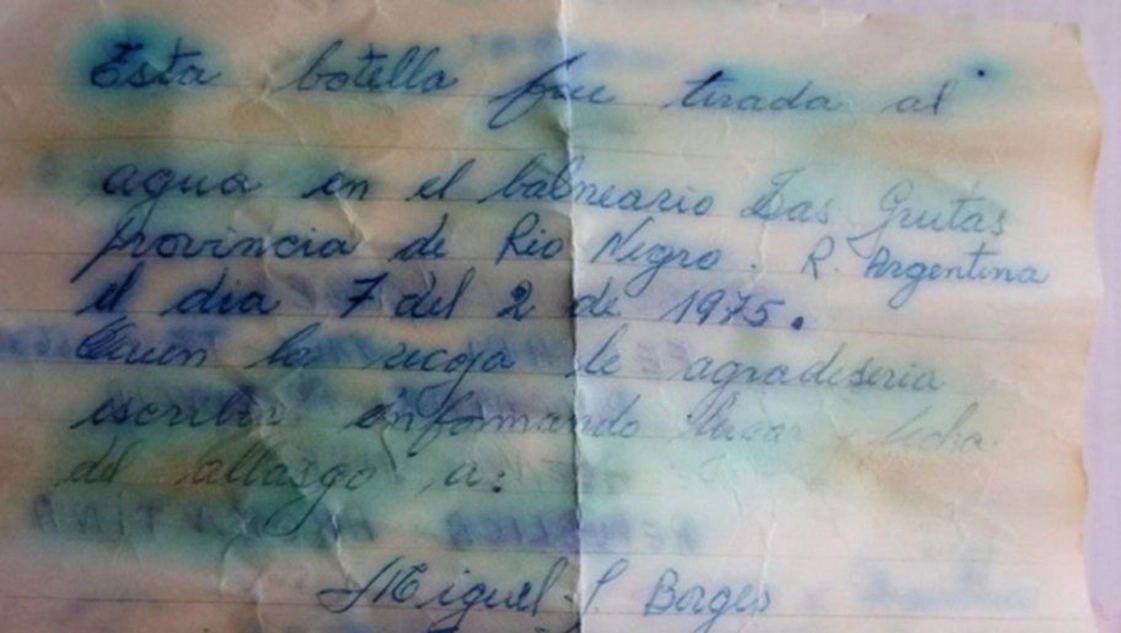 Esta botella fue tirada al
agua en el balneario Las Grutas
provincia de Rio Negro. R. Argentina
el dia 7 del 2 de 1975.
Quien la recoja le agradeseria
escribir infomando lugar y fecha
del allasgo a:
Miguel J. Borges